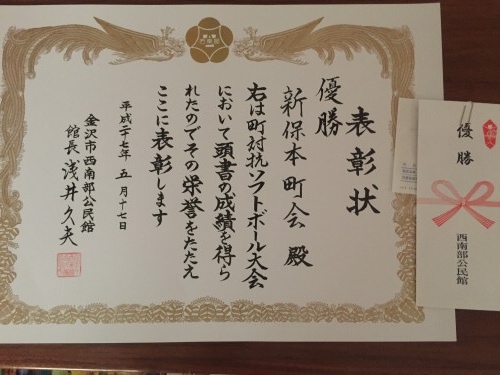 表彰状
優勝
新保本町会 殿
右は町対抗ソフトボール大会
において頭書の成績を得ら
れたのでその栄誉をたたえ
ここに表彰します
平成二十七年 五月十七日
金沢市西南部公民館
館長 浅井久夫
優勝
西南部公民館